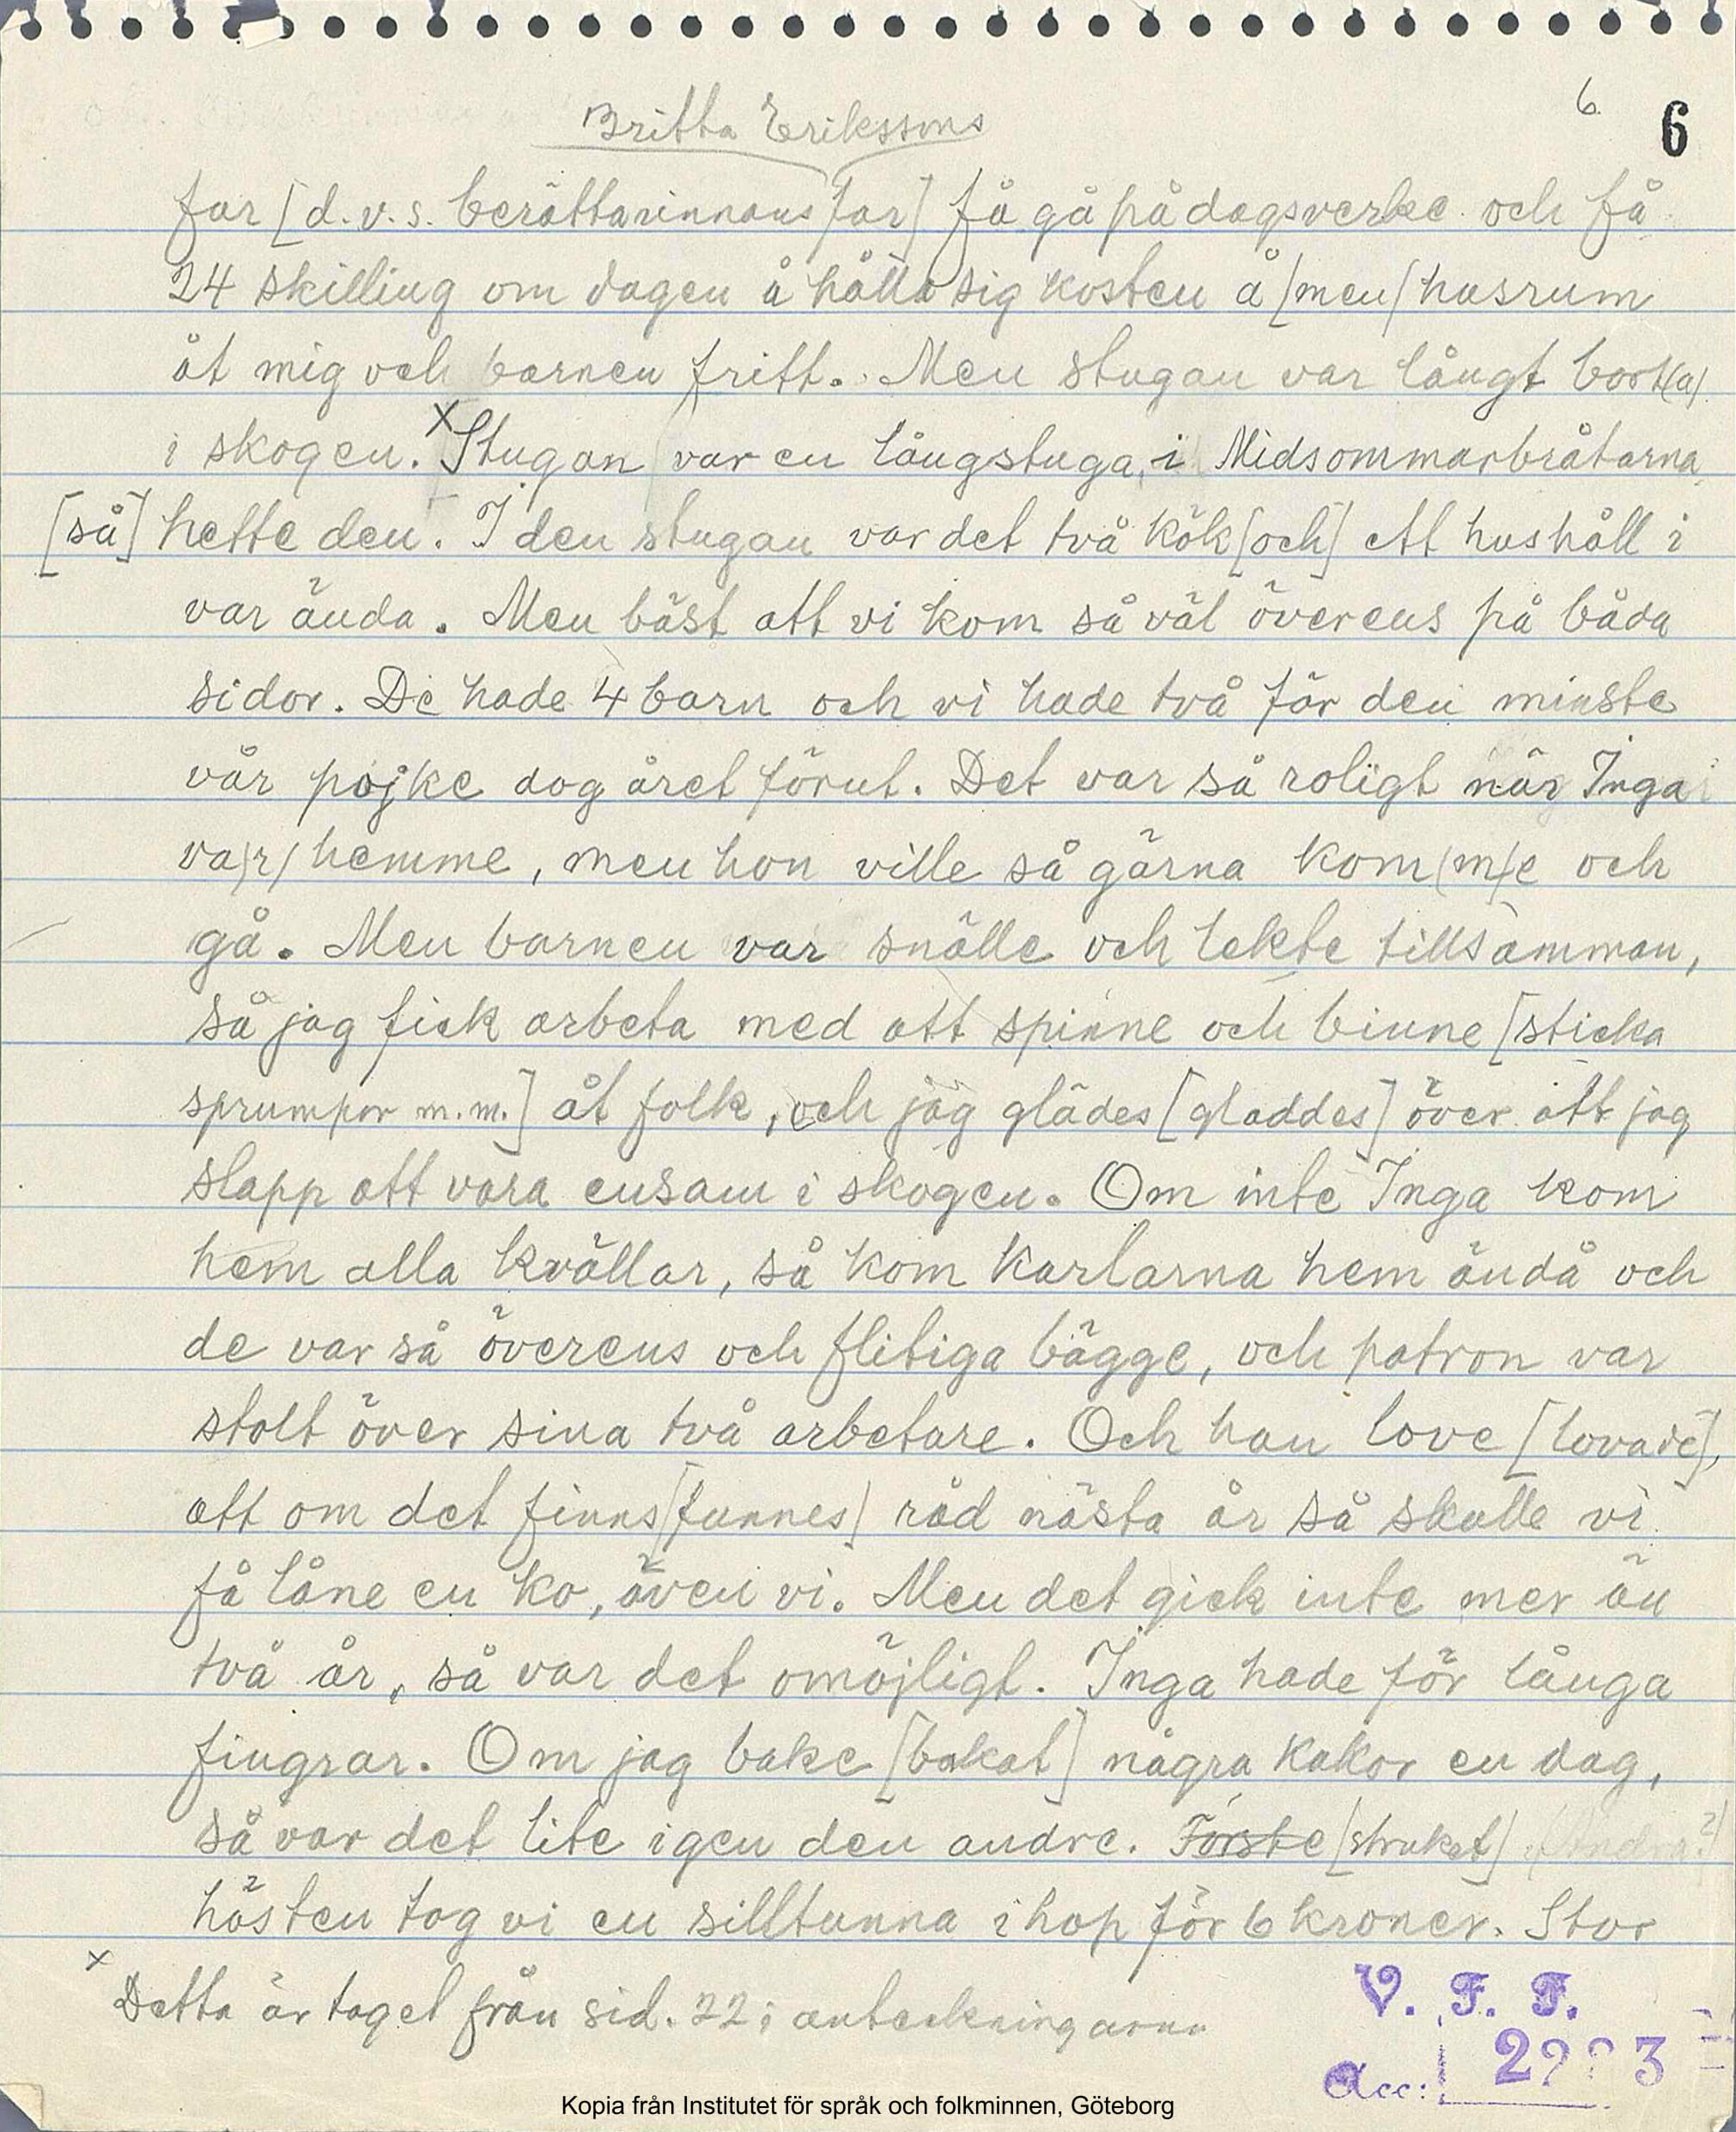 Britta Erikssons
6. 6
far [d.v.s. berättarinnans far] få gå på dagsverke och få
24 skilling om dagen å hålla sig kosten å /men/ husrum
åt mig och barnen fritt. Men stugan var långt bort(a)
i skogen. x Stugan var en långstuga, i Midsommarbråtarna
[så] hette den. I den stugan var det två kök [och] ett hushåll i
var ända. Men bäst att vi kom så väl överens på båda
sidor. De hade 4 barn och vi hade två för den minste
vår pojke dog året förut. Det var så roligt när Inga
va/r/ hemme, men hon ville så gärna kom(m)e och
gå. Men barnen var snälle och lekte tillsamman,
så jag fick arbeta med att spinne och binne [sticka
sprumpor m.m.] åt folk, och jag glädes [gladdes] över att jag
slapp att vara ensam i skogen. Om inte Inga kom
hem alla kvällar, så kom karlarna hem ändå och
de var så överens och flitiga bägge, och patron var
stolt över sina två arbetare. Och han love [lovade],
att om det finns /funnes/ råd nästa år så skulle vi
få låne en ko, även vi. Men det gick inte mer än
två år, så var det omöjligt. Inga hade för långa
fingrar. Om jag bake [bakat] några kakor en dag,
så var det lite igen den andre. Förste [struket] (Andra?)
hösten tog vi en silltunna ihop för 6 kroner. Stor
x Detta är taget från sid. 22 i anteckningarna
V. F. F.
Acc: 
Kopia från Institutet för språk och folkminnen, Göteborg